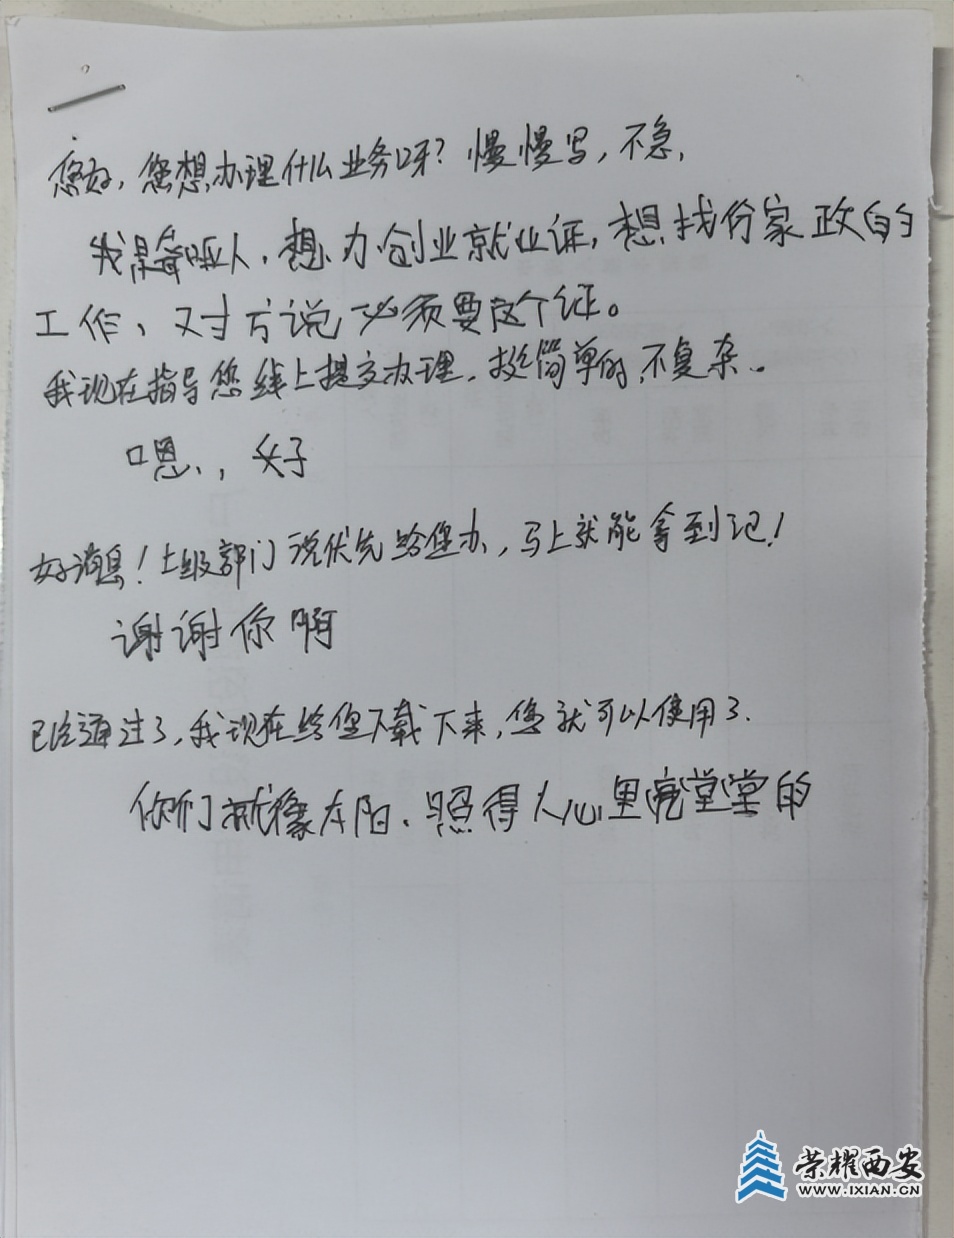 您好，您想办理什么业务呀？慢慢写，不急，
我是聋哑人，想办创业就业证，想找份家政的
工作、对方说必须要这个证。
我现在指导您线上提交办理，挺简单的，不复杂。
嗯，好
好消息！上级部门说优先给您办，马上就能拿到证！
谢谢你啊
已经通过了，我现在给您下载下来，您就可以使用了.
你们就像太阳、照得人心里亮堂堂的
荣耀西安
WWW.IXIAN.CN